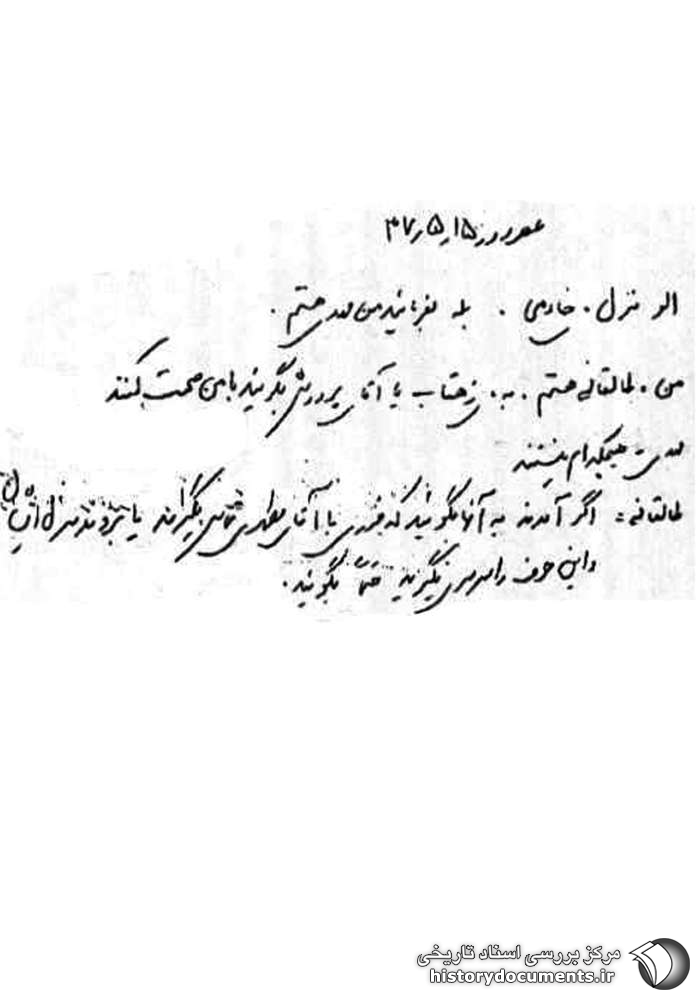 عصر روز ۱۵ر۵ر۳۷
الو منزل . خادمی . بله بفرمائید من مهدی هستم .
من . طالقانی هستم . به . زختاب یا آقای پرورش بگویید با من صحبت کنند
مهدی = هیچکدام نیستند
طالقانی = اگر آمدند به آنها بگوئید که فوری با آقای مطهری تماس بگیرند یا بروند منزل ایشان
و این حرف را سرسری نگیرید حتماً بگوئید .
مرکز بررسی اسناد تاریخی
historydocuments.ir